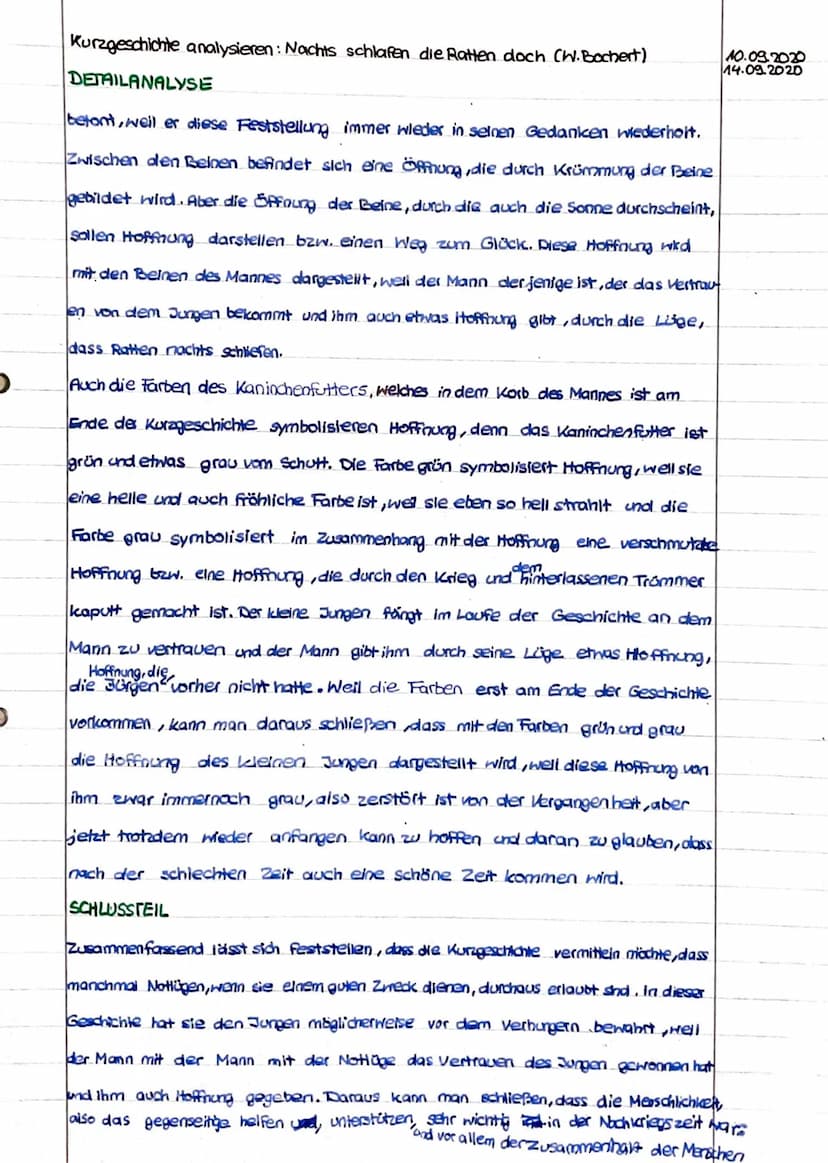 Kurzgeschichte analysieren: Nachts schlafen die Ratten doch (W. Bochert)
10.09.2020
14.09.2020
DETAILANALYSE
betont, weil er diese Feststellung immer wieder in seinen Gedanken wiederholt.
Zwischen den Beinen befindet sich eine Öffnung, die durch Krümmung der Beine
gebildet wird. Aber die Öffnung der Beine, durch die auch die Sonne durchscheint,
sollen Hoffnung darstellen bzw. einen Weg zum Glück. Diese Hoffnung wird
mit den Beinen des Mannes dargestellt, weil der Mann derjenige ist, der das Vertrau-
en von dem Jungen bekommt und ihm auch etwas Hoffnung gibt, durch die Lüge,
dass Ratten nachts schliefen.
Auch die Farben des Kaninchenfutters, welches in dem Korb des Mannes ist am
Ende der Kurzgeschichte symbolisieren Hoffnung, denn das Kaninchenfutter ist
grün und etwas grau vom Schutt. Die Farbe grün symbolisiert Hoffnung, weil sie
eine helle und auch fröhliche Farbe ist, weil sie eben so hell strahlt und die
Farbe grau symbolisiert im Zusammenhang mit der Hoffnung eine verschmutzte
Hoffnung bzw. eine Hoffnung, die durch den Krieg und dem hinterlassenen Trümmer
kaputt gemacht ist. Der kleine Jungen fängt im Laufe der Geschichte an dem
Mann zu vertrauen und der Mann gibt ihm durch seine Lüge etwas Hoffnung,
Hoffnung, die
die Jürgen vorher nicht hatte. Weil die Farben erst am Ende der Geschichte
vorkommen, kann man daraus schließen, dass mit den Farben grün und grau
die Hoffnung des kleinen Jungen dargestellt wird, weil diese Hoffnung von
ihm zwar immernoch grau, also zerstört ist von der Vergangenheit, aber
jetzt trotzdem wieder anfangen kann zu hoffen und daran zu glauben, dass
nach der schlechten Zeit auch eine schöne Zeit kommen wird.
SCHLUSSTEIL
Zusammenfassend lässt sich feststellen, dass die Kurzgeschichte vermitteln möchte, dass
manchmal Notlügen, wenn sie einem guten Zweck dienen, durchaus erlaubt sind. In dieser
Geschichte hat sie den Jungen möglicherweise vor dem Verhungern bewahrt, weil
der Mann mit der Mann mit der Notlüge das Vertrauen des Jungen gewonnen hat
und ihm auch Hoffnung gegeben. Daraus kann man schließen, dass die Menschlichkeit,
also das gegenseitige helfen und, unterstützen, sehr wichtig in der Nachkriegszeit war.
und vor allem der Zusammenhalt der Menschen